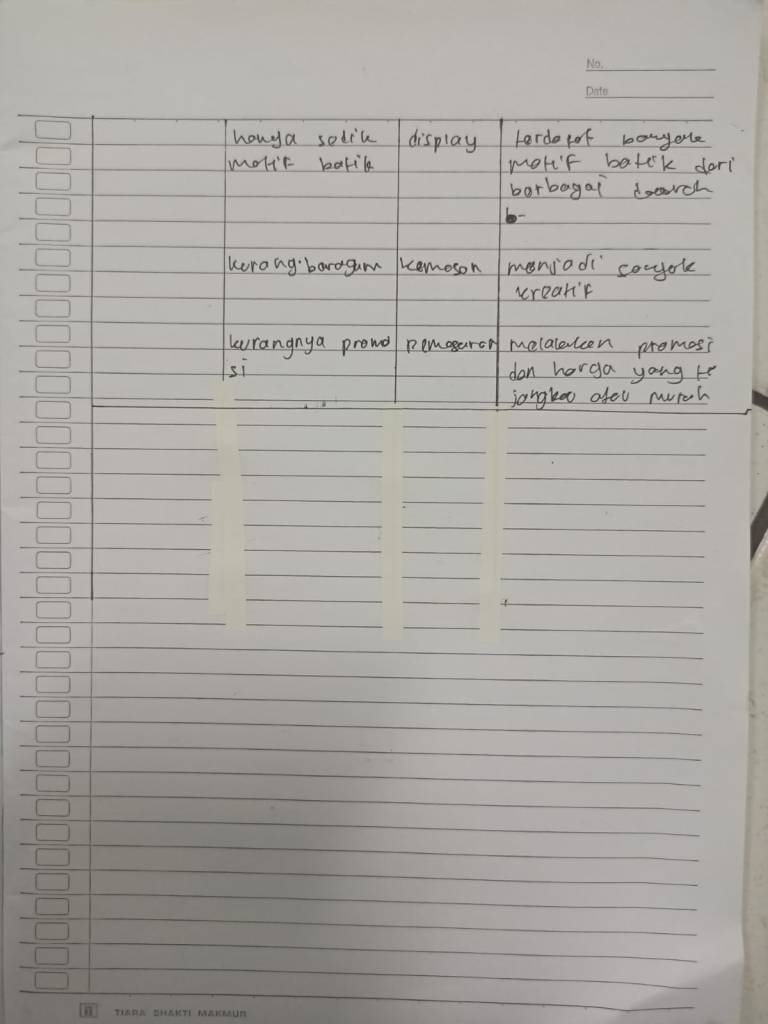 No.
Date
hanya sedik display terdapat banyak
motif batik motif batik dari
barbagai daerah
b-
kurang baragam kemasan menjadi banyak
kreatif
kurangnya promo pemasaran melalukan promosi
si dan harga yang te
jangkau atau murah
TIARA SHAKTI MAKMUR